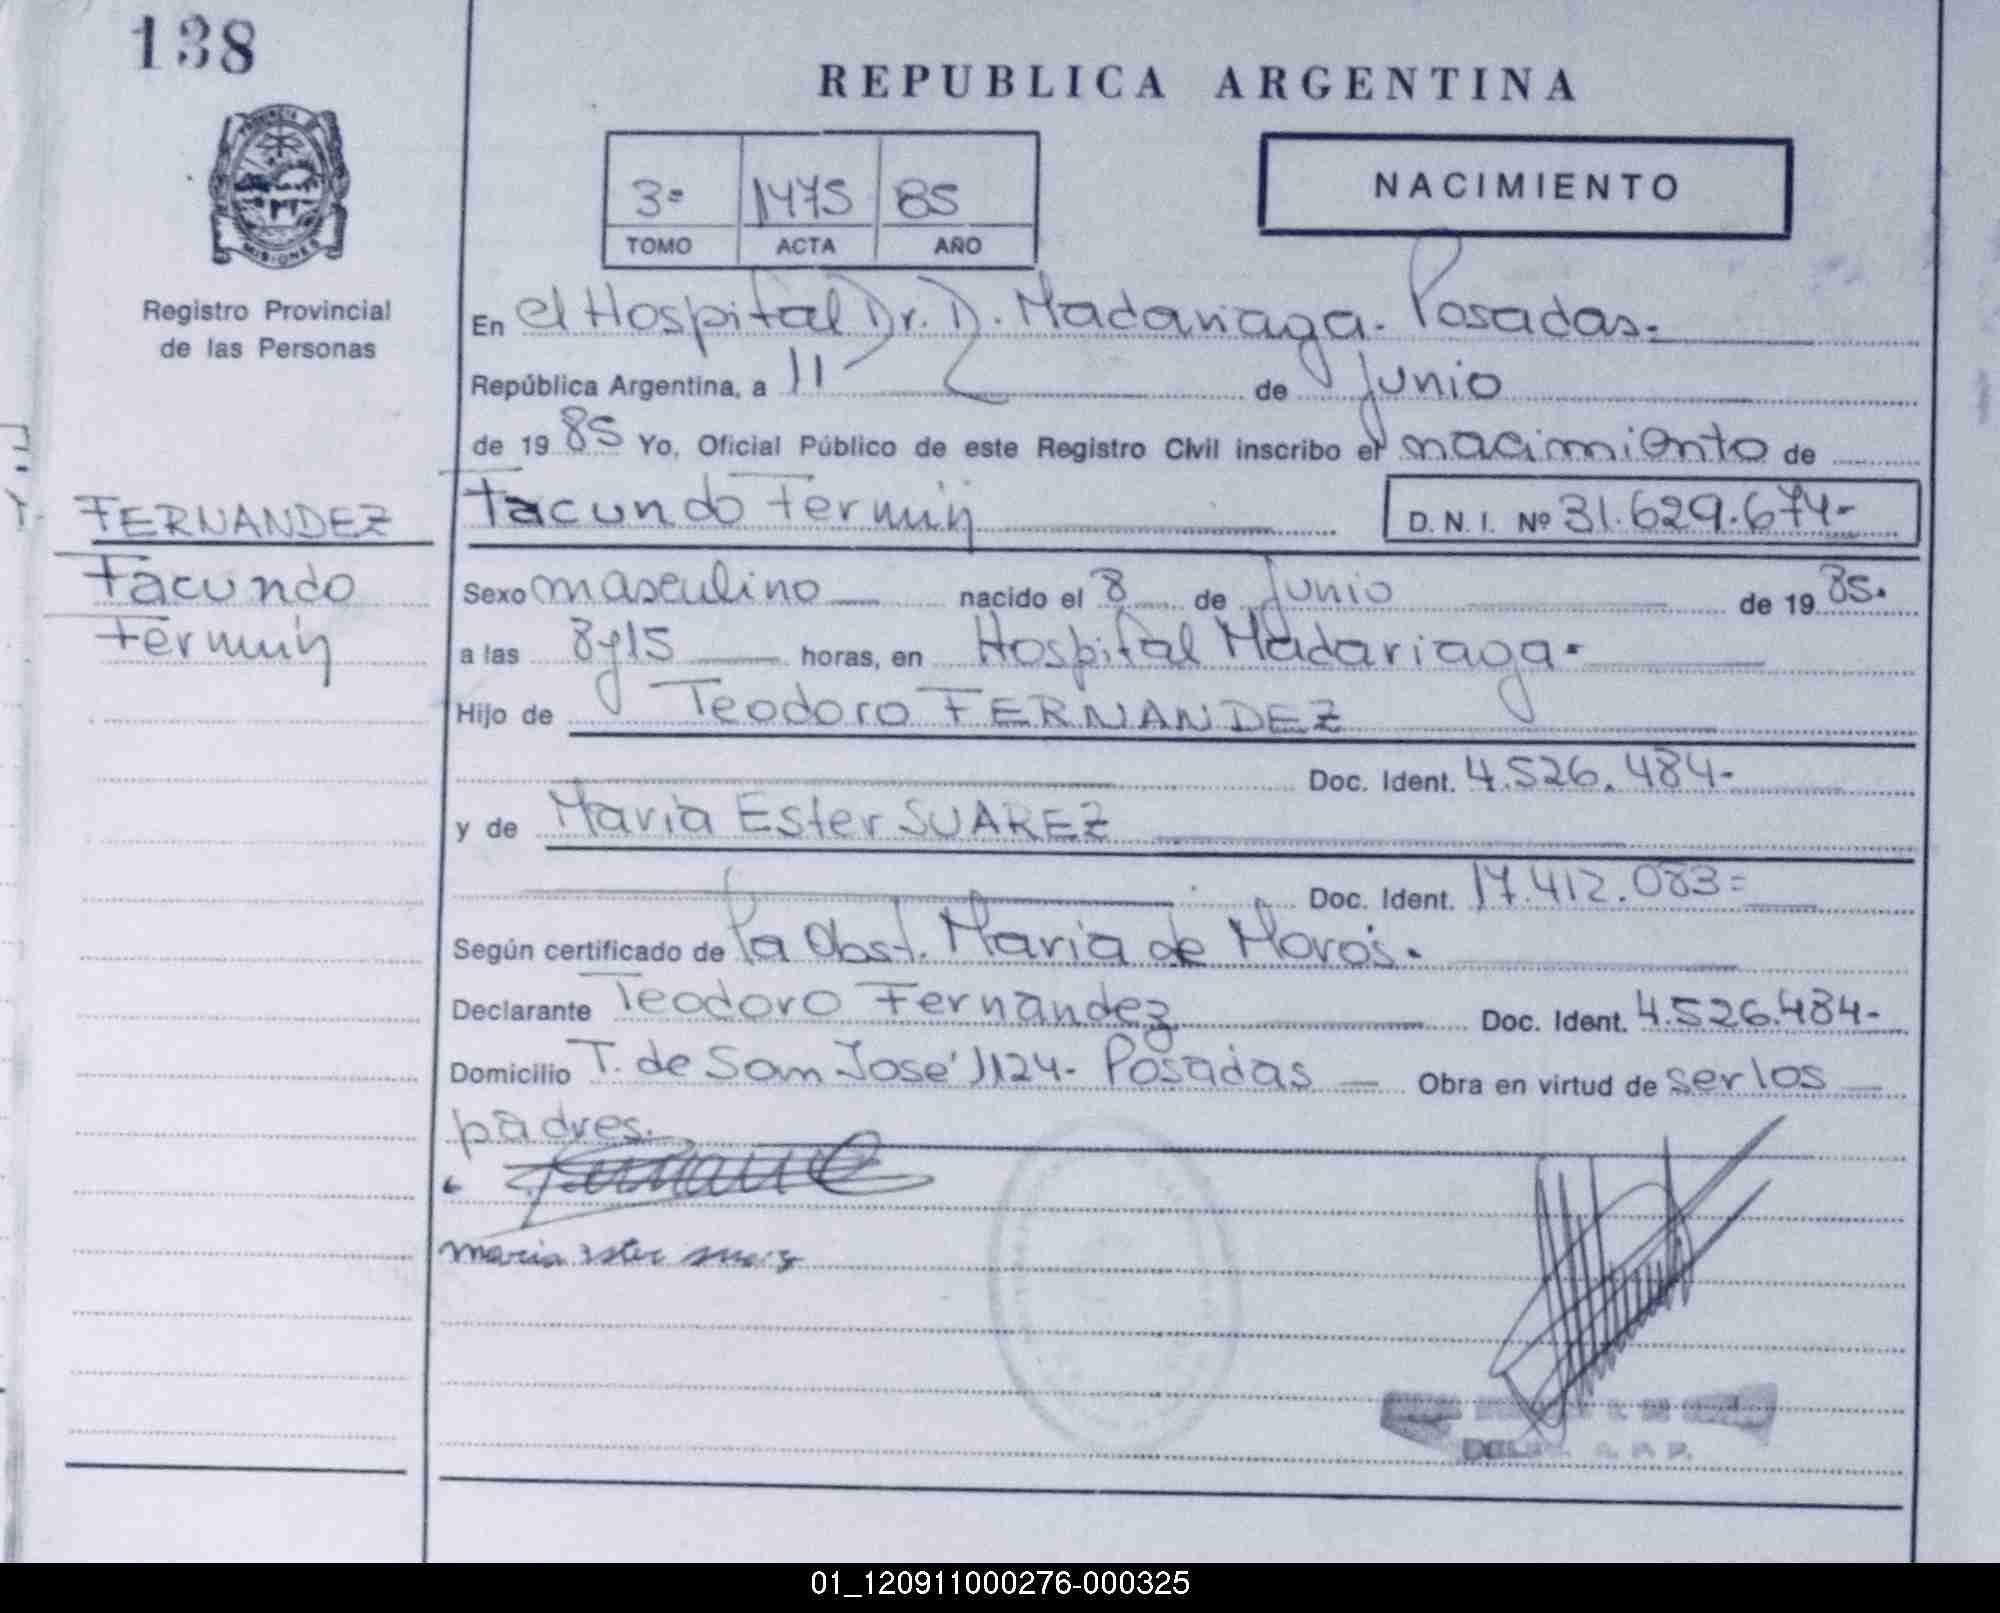 138
REPUBLICA ARGENTINA
PROVINCIA DE
MISIONES
Registro Provincial
de las Personas
3º 1475 85
TOMO ACTA AÑO
NACIMIENTO
En el Hospital Dr. D. Madariaga. Posadas.
República Argentina, a 11 de Junio
de 1985 Yo, Oficial Público de este Registro Civil inscribo el nacimiento de
Facundo Fermín D. N. I. Nº 31.629.674-
FERNANDEZ
Facundo
Fermín
Sexo masculino nacido el 8 de Junio de 1985.
a las 8y15 horas, en Hospital Madariaga.
Hijo de Teodoro FERNANDEZ
Doc. Ident. 4.526.484-
y de María Ester SUAREZ
Doc. Ident. 17.412.083=
Según certificado de la Obst. María de
Declarante Teodoro Fernández Doc. Ident. 4.526.484-
Domicilio T. de San José 1124- Posadas Obra en virtud de ser los
padres.
maria ester
01_120911000276-000325